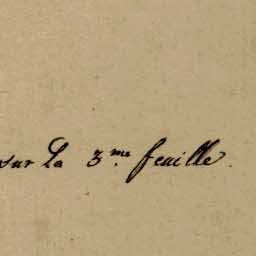 sur La 3.me feuille.